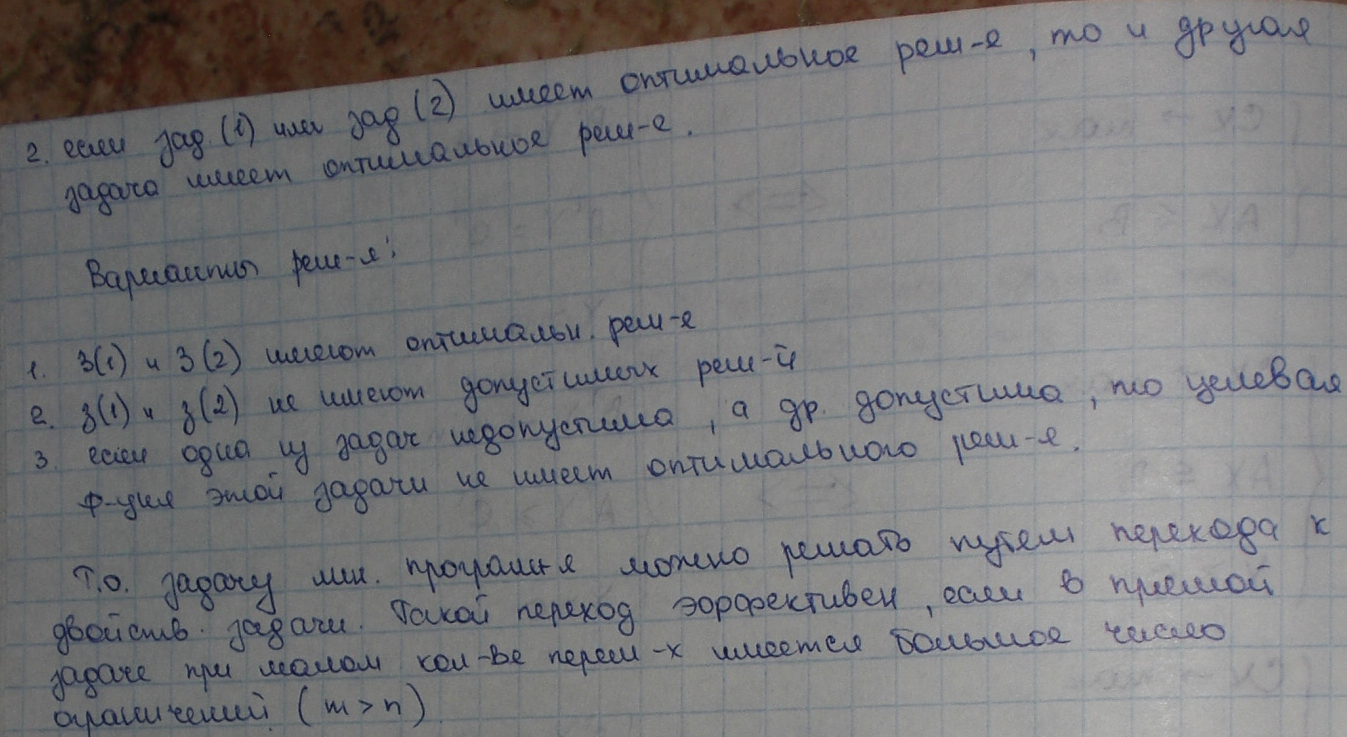 2. если зад. (1) или зад (2) имеет оптимальное реш-е, то и другая
задача имеет оптимальное реш-е.
Варианты реш-я:
1. З(1) и З(2) имеют оптимальн. реш-е
2. З(1) и З(2) не имеют допустимых реш-й
3. если одна из задач недопустима, а др. допустима, то целевая
ф-ция этой задачи не имеет оптимального реш-я.
Т.о. задачу лин. програм-я можно решать путем перехода к
двойств. задачи. Такой переход эффективен, если в прямой
задаче при малом кол-ве перем-х имеется большое число
ограничений (m>n)